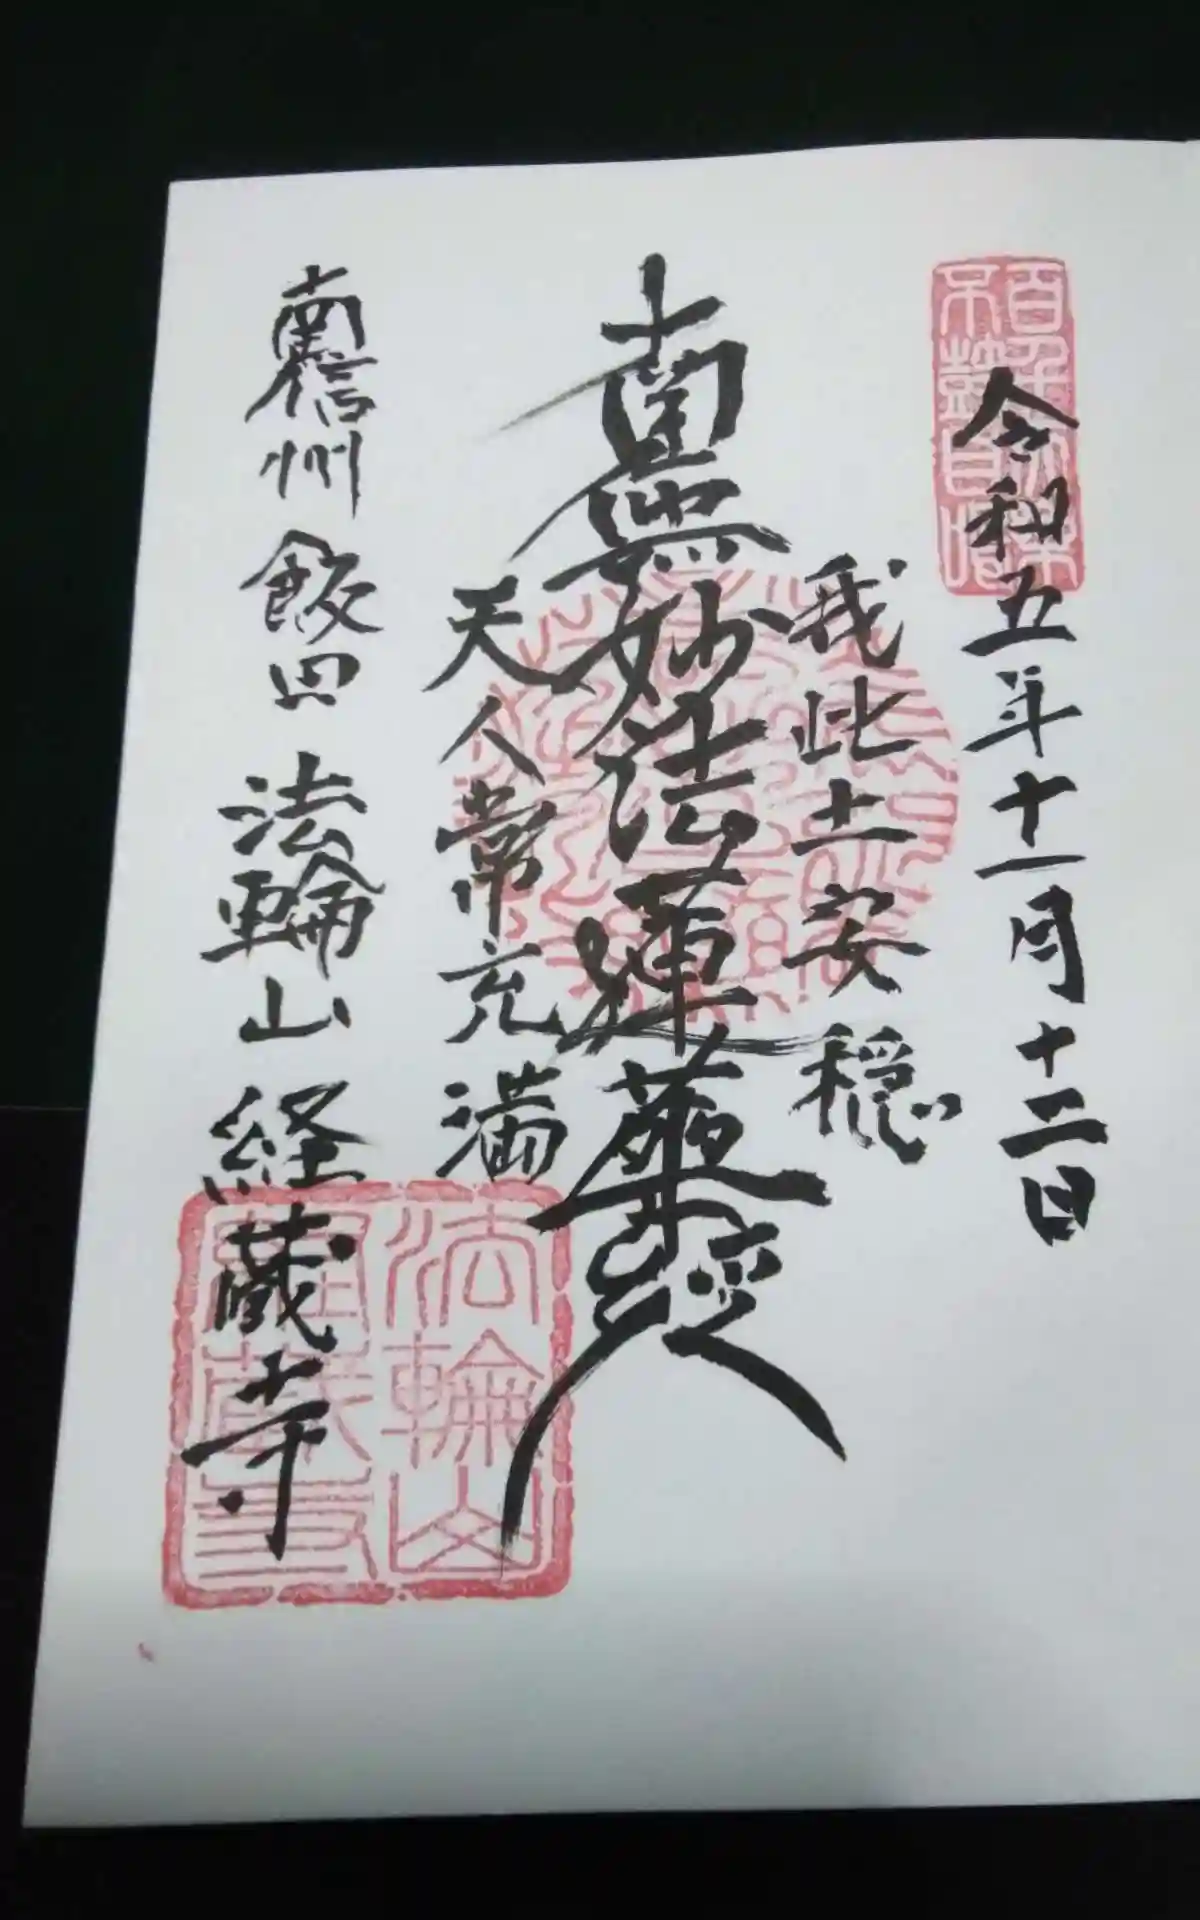 令和五年十一月十二日
我此土安穏
南無妙法蓮華経
天人常充満
南信州飯田法輪山経蔵寺
法輪山
経蔵寺